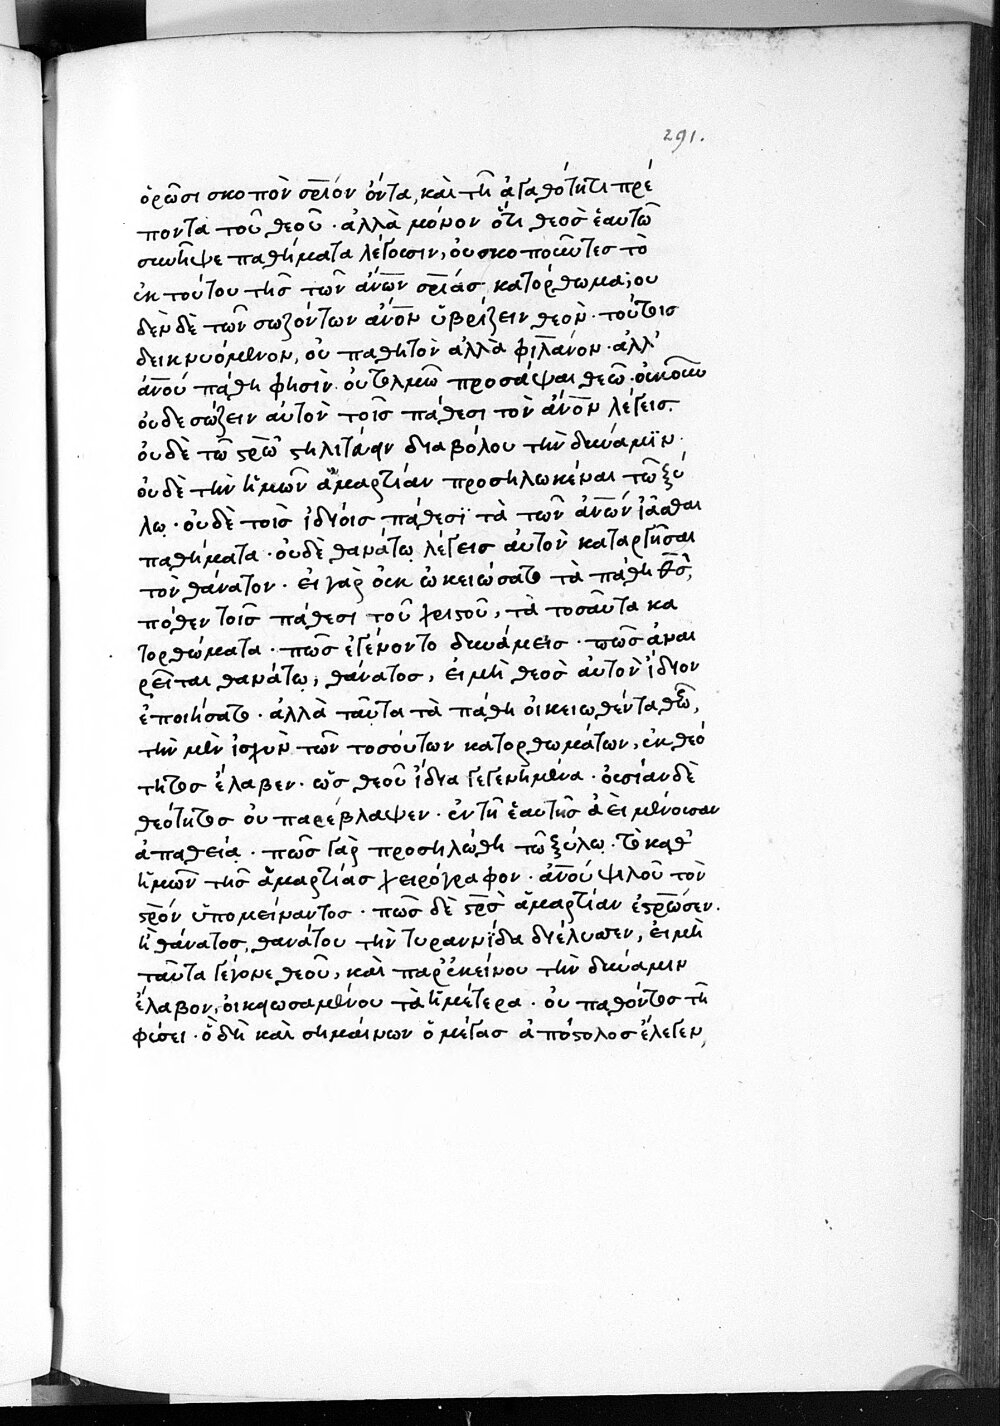 291.
ὁρῶσι σκοπὸν σριόν ὄντα, καὶ τῆ ἀγαθότητι πρέ
ποντα τοῦ θεοῦ · ἀλλὰ μόνον ὅτι θεὸσ ἑαυτῶ
συνῆψε παθήματα λέγουσιν, οὐ σκοποῦντεσ τὸ
ἐκ τούτου τῆσ τῶν ἀνων σριάσ κατόρθωμα; ου
δὲν δὲ τῶν σωζόντων ἀνον ὑβρίζειν θεὸν · τούτοισ
δεικνυόμενον, οὐ παθητὸν ἀλλὰ φιλανον · ἀλλ'
ἀνου πάθη φησὶν οὐ τολμῶ προσάψαι θεῶ · οὐκοῦν
οὐδε σώζειν αὐτὸν τοῖσ πάθεσι τὸν ἀνον λέγεισ.
οὐδὲ τῶ σρω στηλιτεύειν διαβόλου τὴν δύναμϊν ·
οὐδὲ τὴν ἡμῶν ἁμαρτίαν προσηλωκέναι τῶ ξύ
λω · οὐδὲ τοῖσ ἰδίοισ πάθεσϊ τὰ τῶν ἀνων ἰᾶσθαι
παθήματα · οὐδὲ θανάτω λέγεισ αὐτὸν καταργῆσαι
τὸν θάνατον · εἰ γὰρ οὐκ ὠκειώσατο τὰ πάθη θσ,
πόθεν τοῖσ πάθεσι τοῦ χριστοῦ, τὰ τοσαῦτα κα
τορθώματα · πῶσ ἐγένοντο δυνάμεισ · πῶσ ἀναι
ρεῖται θανάτω, θάνατοσ, εἰ μὴ θεὸσ αὐτὸν ἴδιον
ἐποιήσατο · ἀλλὰ ταῦτα τὰ πάθη οἰκειωθέντα θω,
τὴν μὲν ἰσχὺν τῶν τοσούτων κατορθωμάτων, ἐκ θεό
τητοσ ἔλαβεν · ὡσ θεοῦ ἴδια γεγενημένα · οὐσίαν δὲ
θεότητοσ οὐ παρέβλαψεν · ἐν τῆ ἑαυτῆσ ἀεὶ μένουσαν
ἀπαθεία · πῶσ γὰρ προσηλώθη τῶ ξύλω · τὸ καθ'
ἡμῶν τῆσ ἁμαρτίασ χειρόγραφον · ἀνου ψιλοῦ τὸν
σρόν ὑπομείναντοσ · πῶσ δὲ σρσ ἁμαρτίαν ἐσρωσεν.
ἢ θάνατοσ, θανάτου τὴν τυραννϊδα διέλυσεν, εἰ μὴ
ταῦτα γέγονε θεοῦ, καὶ παρ' ἐκείνου τὴν δύναμιν
ἔλαβον, οἰκειωσαμένου τὰ ἡμέτερα · οὐ παθόντοσ τῆ
φύσει · ὃ δὴ καὶ σημαίνων ὁ μέγασ ἀπόστολοσ ἔλεγεν,